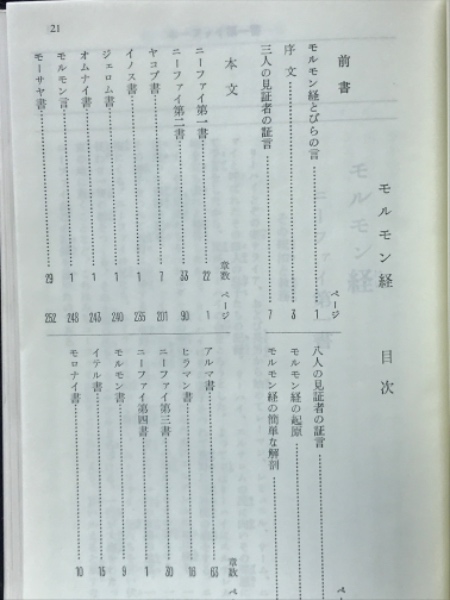 21
モルモン経 目次
前書
ページ
モルモン経とびらの言 1
序文 3
三人の見証者の証言 7
八人の見証者の証言
モルモン経の起原
モルモン経の簡単な解剖
本文
章数 ページ
ニーファイ第一書 22 1
ニーファイ第二書 33 90
ヤコブ書 7 201
イノス書 1 235
ジェロム書 1 240
オムナイ書 1 243
モルモン言 1 248
モーサヤ書 29 252
章数
アルマ書 63
ヒラマン書 16
ニーファイ第三書 30
ニーファイ第四書 1
モルモン書 9
イテル書 15
モロナイ書 10